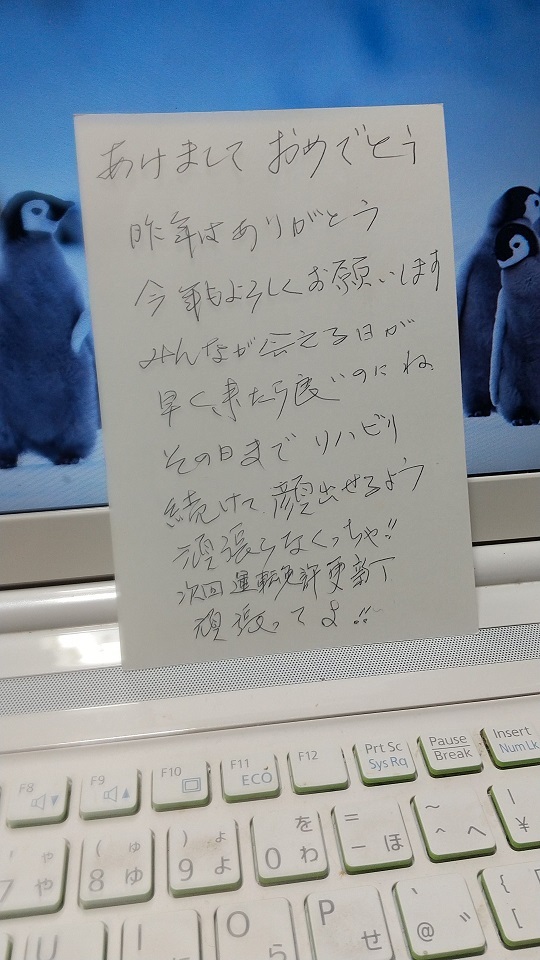 あけまして おめでとう
昨年はありがとう
今年もよろしくお願いします
みんなが会える日が
早く来たら良いのにね
その日まで リハビリ
続けて 顔出せるよう
頑張らなくっちゃ!!
次回 運転免許更新
頑張ってよ!!
F8
F9
F10
F11
ECO
F12
Prt Sc
Sys Rq
Pause
Break
Insert
Num Lk
7 や ゃ
( 8 ゆ ゅ
) 9 よ ょ
0 わ を
= - ほ
~ ^ へ
| ¥
U
I
O ら
P せ
` @ ゛
{ [